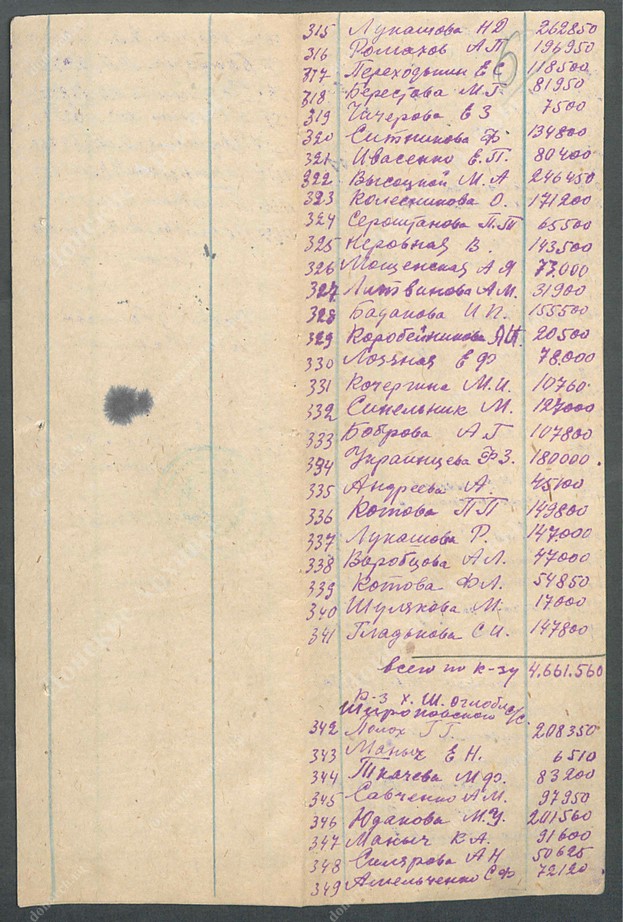 315 Лукашова Н Д 262850
316 Ромахов А П 196950
317 Переходькин Е С 118500
318 Берестова М.Г. 81950
319 Чичерова Е З 7500
320 Ситникова Ф 134800
321 Ивасенко Е.П. 80400
322 Высоцкой М.А 246450
323 Колесникова О. 171200
324 Сероштанова П.Т 65500
325 Неровная В. 143500
326 Мощенская А Я 77.000
327 Литвинова А.М. 31900
328 Бадакова И.П. 155500
329 Коробейникова 20500
330 Лозяная Е Ф 78.000
331 Кочергина М.И. 10760
332 Синельник М. 127000
333 Боброва А Г 107800
334 Украинцева Ф З. 180000
335 Андреева А. 45100
336 Котова П П 149800
337 Лукашова Р. 147.000
338 Варобцова А Л. 47000
339 Котова Ф Л. 54850
340 Шулякова М. 17000
341 Гладькова С И. 147800
всего по к-зу 4.661.560
К-з х. Ш. Оглобля
Широковского с/с.
342 Полох Г Г. 208350
343 Маныч Е Н. 6510
344 Ткачева М Ф. 83200
345 Савченко А М. 97950
346 Юдакова М.У. 201560
347 Маныч К А. 91600
348 Силярова А Н 50625
349 Амельченко С Ф 72120